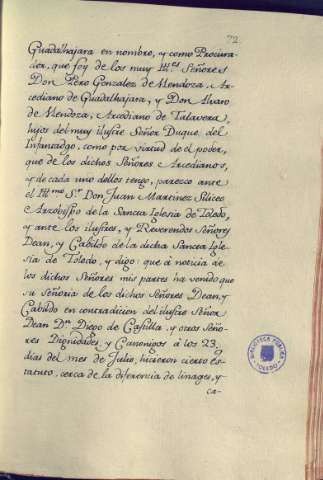 72.
Guadalhajara en nombre, y como Procura-
dor, que soy de los muy Ill.es Señores
Don Pero Gonzalez de Mendoza, Ar-
cediano de Guadalhajara, y Don Alvaro
de Mendoza, Arcediano de Talavera,
hijos del muy ilustre Señor Duque del
Infantado, como por virtud de el poder,
que de los dichos Señores Arcedianos,
y de cada uno dellos tengo, parezco ante
el Ill.mo S.r Don Juan Martinez Siliceo
Arzobispo de la Sancta Iglesia de Toledo,
y ante los ilustres, y Reverendos Señores
Dean, y Cabildo de la dicha Sancta Igle-
sia de Toledo, y digo: que à noticia de
los dichos Señores mis partes ha venido que
su Señoria de los dichos Señores Dean, y
Cabildo en contradicion del ilustre Señor
Dean D.n Diego de Castilla, y otros Seño-
res Dignidades, y Canonigos à los 23,
dias del mes de Julio, hicieron cierto es-
tatuto, cerca de la diferencia de linages, y
ca-
BIBLIOTECA PUBLICA
TOLEDO